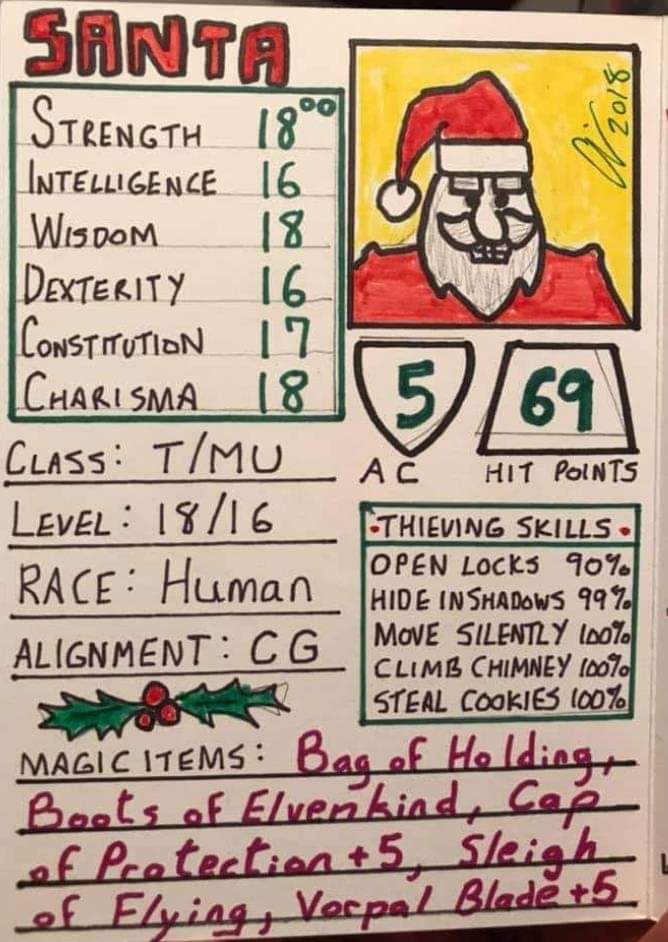 SANTA
STRENGTH 18⁰⁰
INTELLIGENCE 16
WISDOM 18
DEXTERITY 16
CONSTITUTION 17
CHARISMA 18
2018
5
AC
69
HIT POINTS
CLASS: T/MU
LEVEL: 18/16
RACE: Human
ALIGNMENT: CG
•THIEVING SKILLS•
OPEN LOCKS 90%
HIDE IN SHADOWS 99%
MOVE SILENTLY 100%
CLIMB CHIMNEY 100%
STEAL COOKIES 100%
MAGIC ITEMS: Bag of Holding,
Boots of Elvenkind, Cap
of Protection +5, Sleigh
of Flying, Vorpal Blade +5